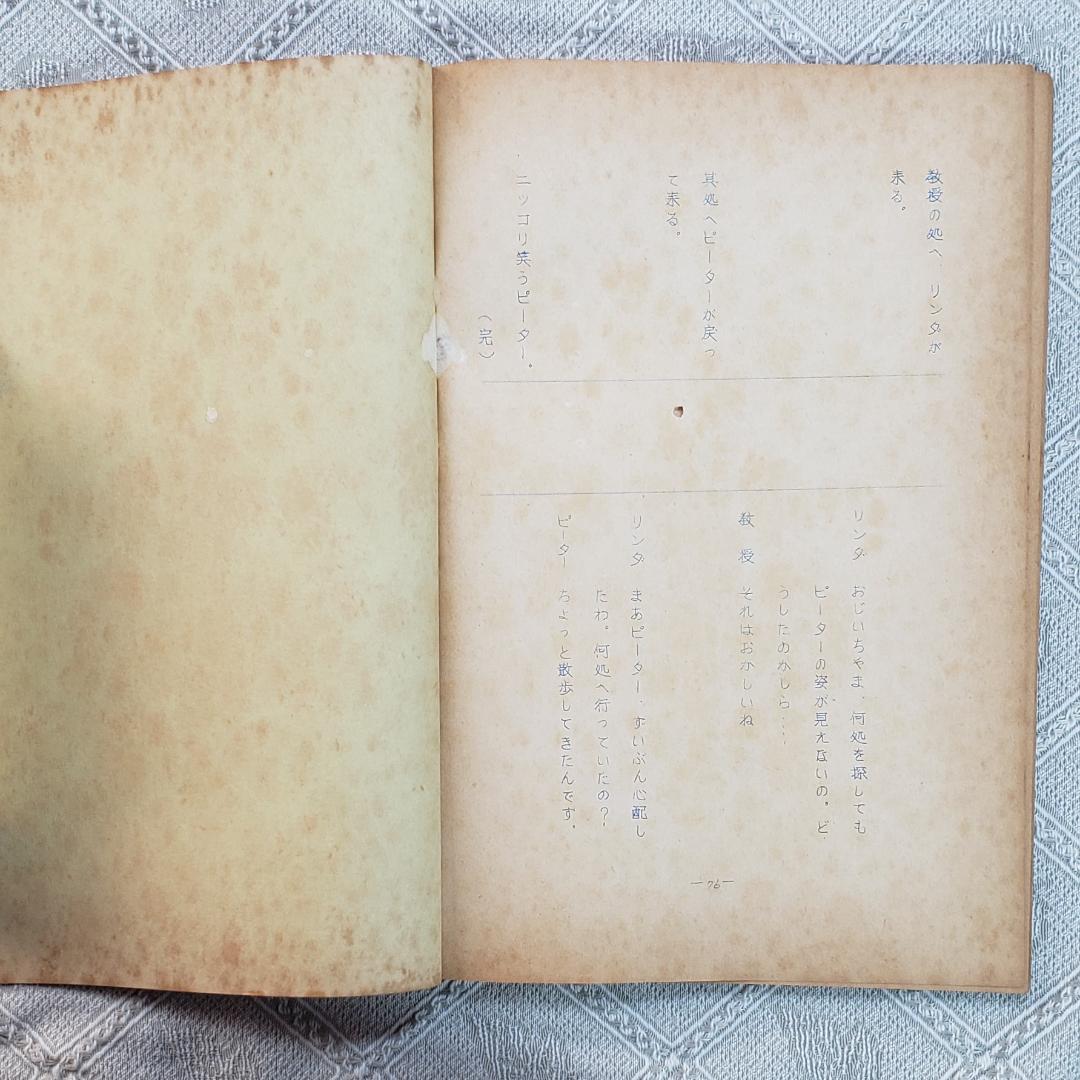 教授の処へ、リンダが
来る。
其処へピーターが戻っ
て来る。
ニッコリ笑うピーター。
（完）
リンダ　おじいちゃま、何処を探しても
ピーターの姿が見えないの。ど
うしたのかしら……
教　授　それはおかしいね
リンダ　まあピーター、ずいぶん心配し
たわ。何処へ行っていたの？
ピーター　ちょっと散歩してきたんです。
―76―